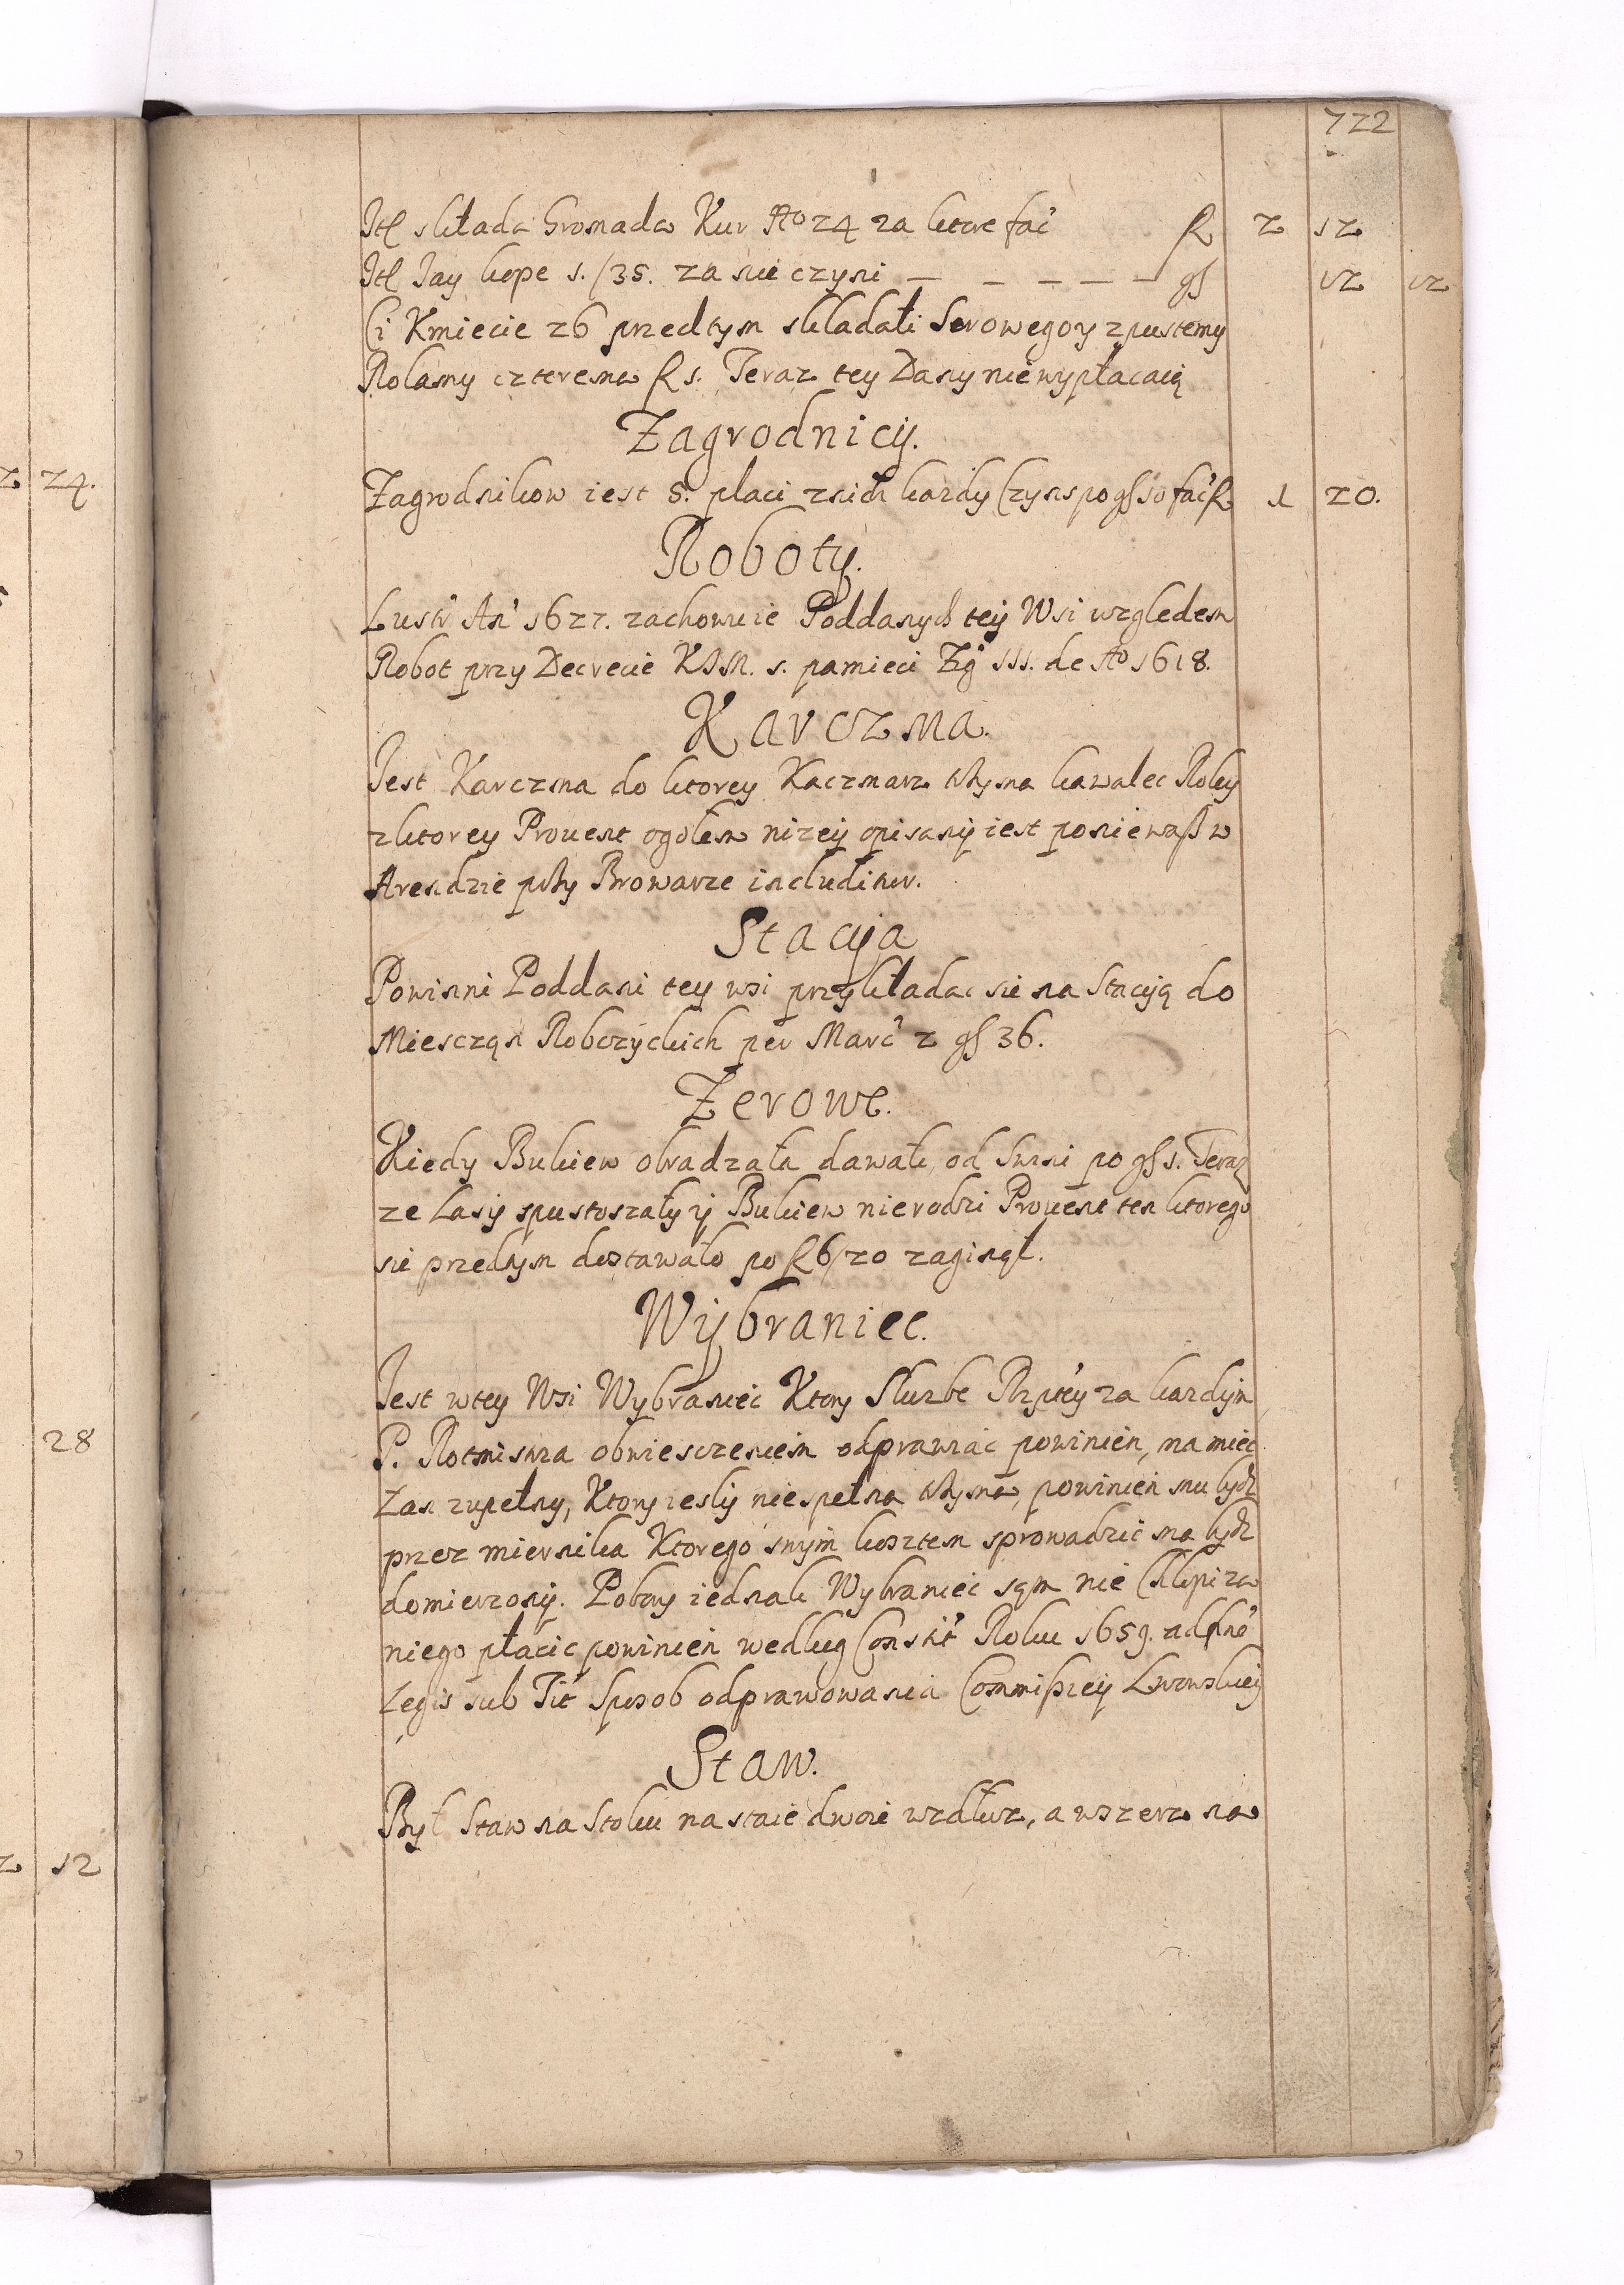 722
Itē składa Gromada Kur Nᵒ 24 za ktore fać fl 2 12
Itē Jay kope 1./35. za nie czyni — — — — — gß 12 12
Ci Kmiecie 26 przedtym składali Serowego y z pustemy
Rolamy czterema fl 1. Teraz tey Dany niewypłacaią
Zagrodnicy.
Zagrodnikow iest 5. płaci znich kazdy Czynsz po gß 10 fać fl 1 20.
Roboty.
Lustr An 1627. zachowuie Poddanych tey Wsi względem
Robot przy Decrecie KJM. s. pamieci Zyg III. de Aᵒ 1618.
Karczma.
Jest Karczma do ktorey Kaczmarz trzyma kawalec Roley
z ktorey Prouent ogołem nizey opisany iest poniewasz w
Arendzie przy Browarze includitur.
Stacya
Powinni Poddani tey wsi przykładac sie na Stacyą do
Miesczan Robczyckich per Marc 2 gß 36.
Zerowe.
Kiedy Bukiew obradzała dawali od Swini po gß 1. Teraz
ze Lasy spustoszały y Bukiew nierodzi Prouent ten ktorego
sie przedtym dostawało po fl 6/20 zaginął.
Wybraniec.
Jest w tey Wsi Wybraniec Ktory Sluzbe Rzptey za kazdym
P. Rotmistrza obwiesczeniem odprawiac powinien, ma miec
Łan zupełny, Ktory iesly niespełna trzyma, powinien mu bydz
przez miernika Ktorego swym kosztem sprowadzic ma bydz
domierzony. Pobory iednak Wybraniec sąm nie Chłopi za
niego płacic powinien według Constit Roku 1659. ad
Legis sub Tit Sposob odprawowania Commissiey Lwowskiey
Staw.
Był Staw na Stoku na staie dwoie wzdłuz, a wszerz na
24.
28
12